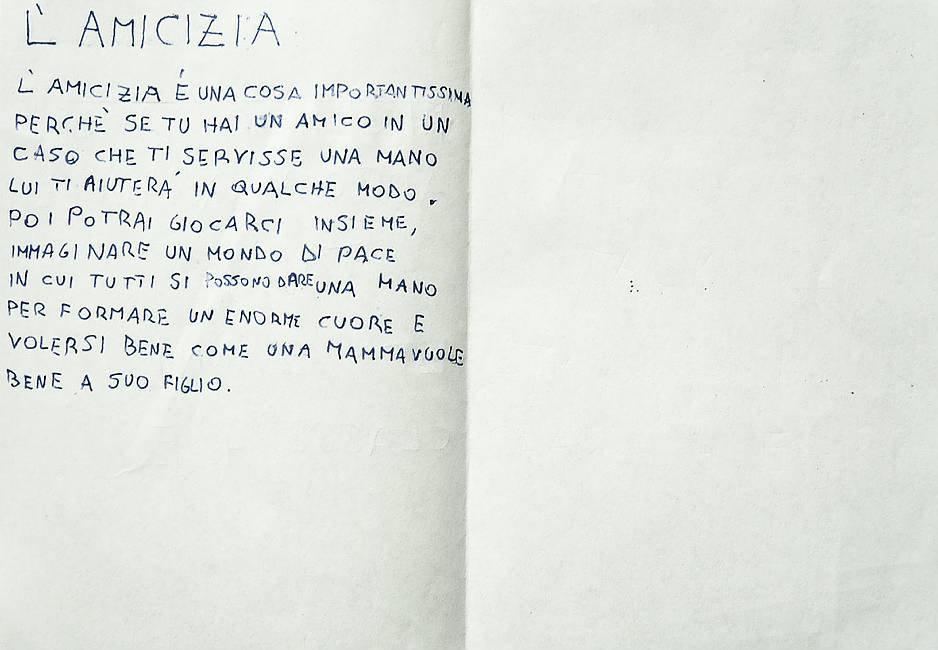 L'AMICIZIA
L'AMICIZIA É UNA COSA IMPORTANTISSIMA
PERCHÈ SE TU HAI UN AMICO IN UN
CASO CHE TI SERVISSE UNA MANO
LUI TI AIUTERÁ IN QUALCHE MODO.
POI POTRAI GIOCARCI INSIEME,
IMMAGINARE UN MONDO DI PACE
IN CUI TUTTI SI POSSONO DARE UNA MANO
PER FORMARE UN ENORME CUORE E
VOLERSI BENE COME UNA MAMMA VUOLE
BENE A SUO FIGLIO.